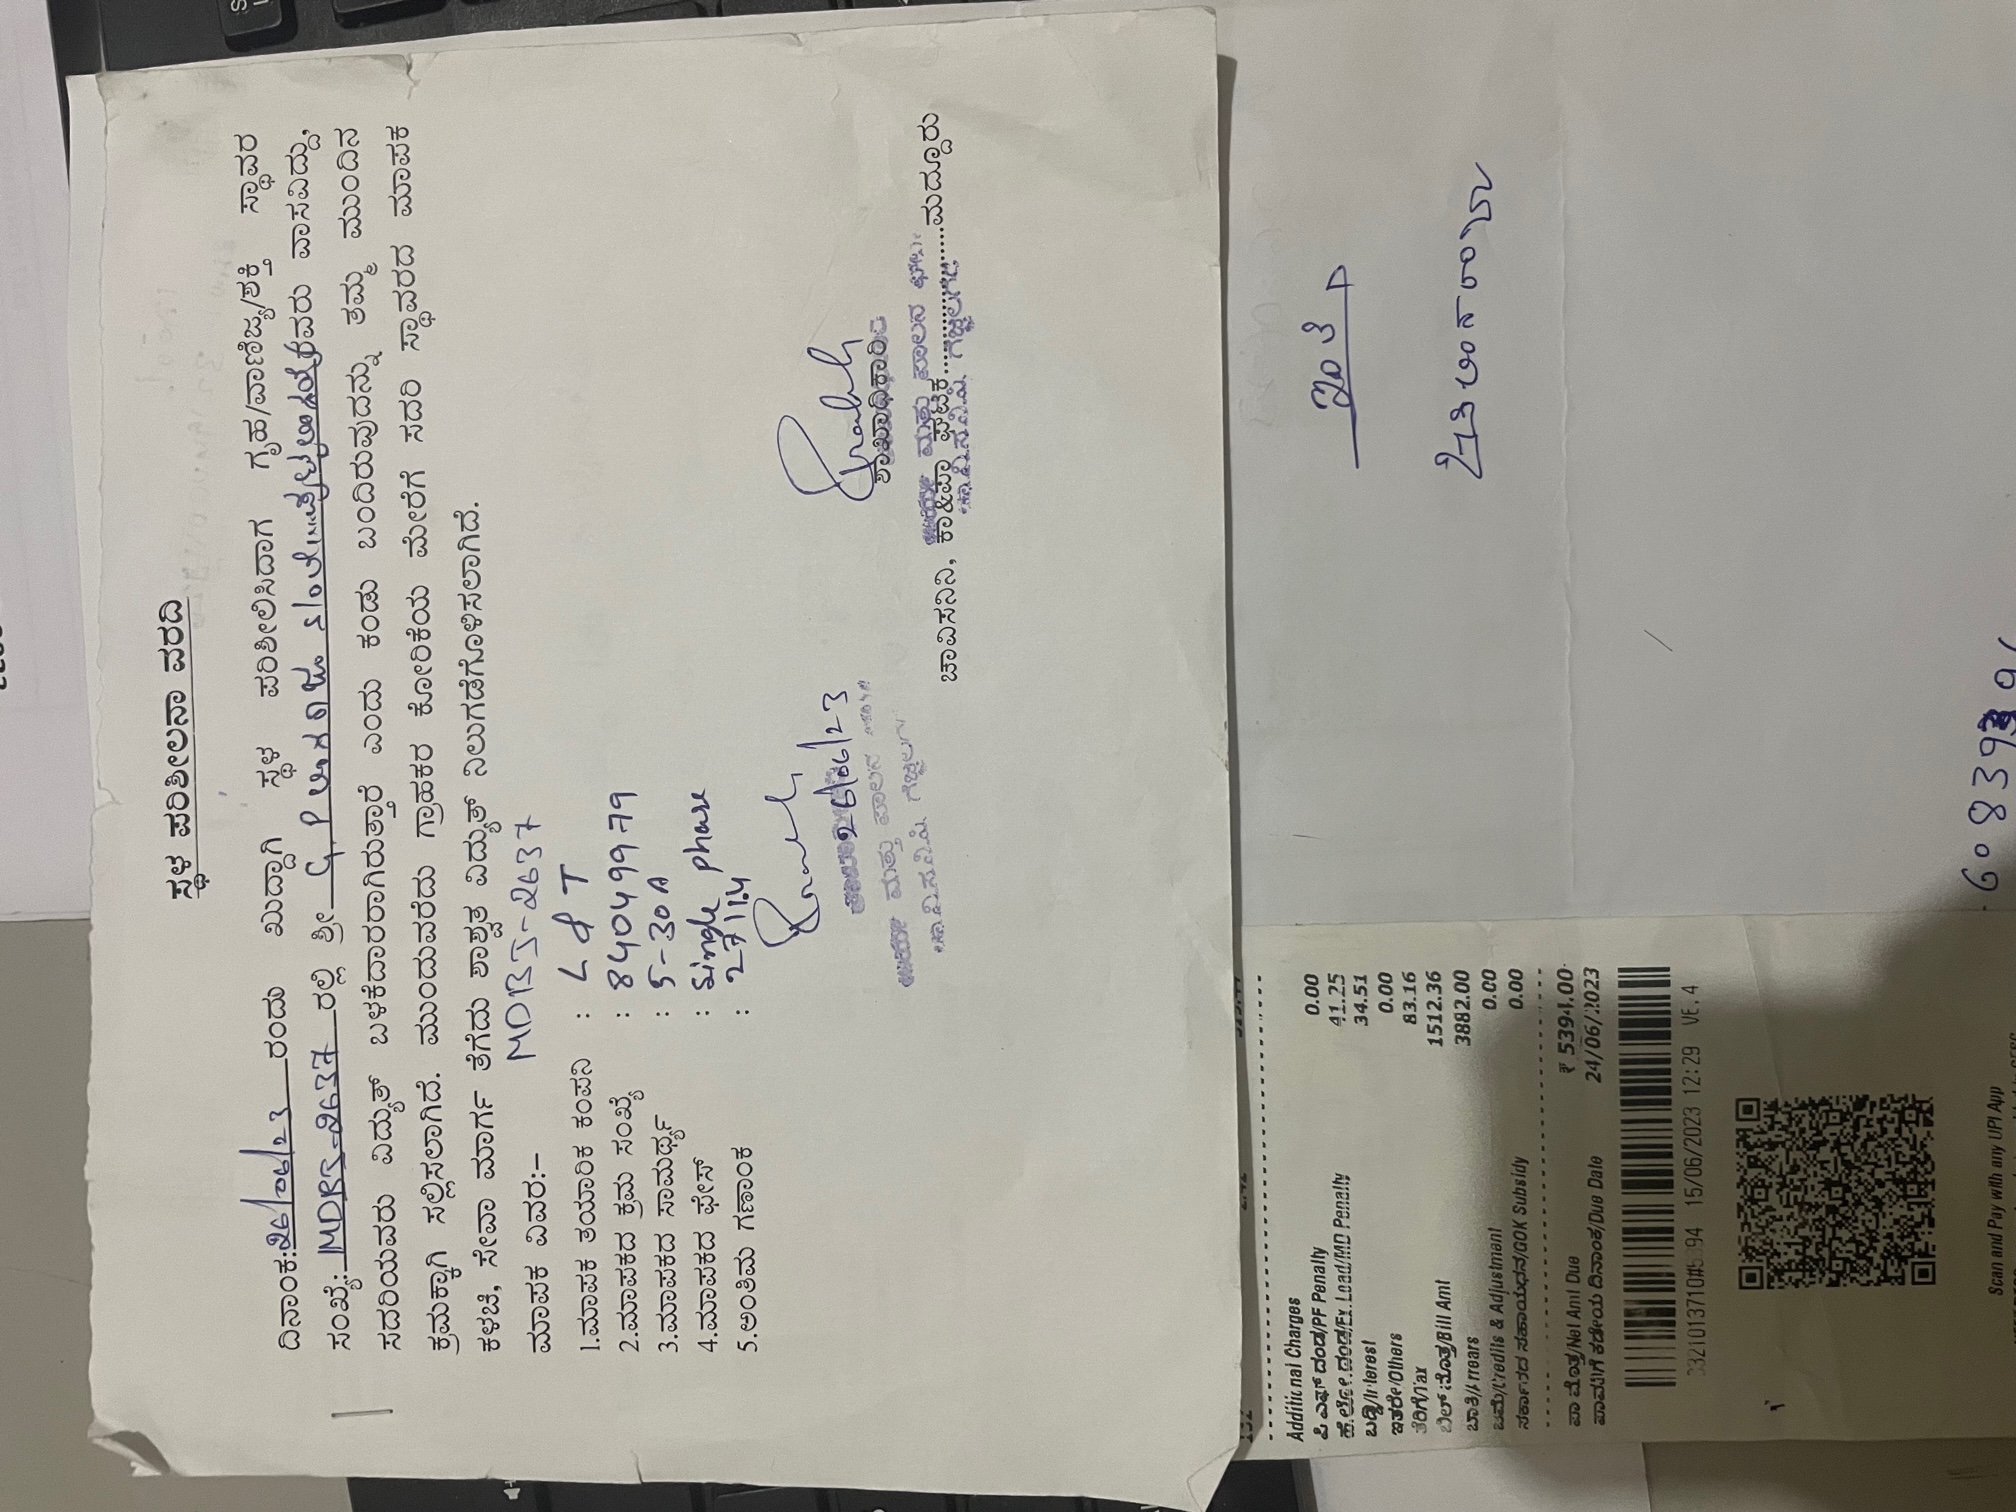 ಸ್ಥಳ ಪರಿಶೀಲನಾ ವರದಿ
ದಿನಾಂಕ:26/06/23 ರಂದು ಖುದ್ದಾಗಿ ಸ್ಥಳ ಪರಿಶೀಲಿಸಿದಾಗ ಗೃಹ/ವಾಣಿಜ್ಯ/ಶಕ್ತಿ ಸ್ಥಾವರ
ಸಂಖ್ಯೆ: MDBJ-2637 ರಲ್ಲಿ ಶ್ರೀ ರವರು ವಾಸವಿದ್ದು,
ಸದರಿಯವರು ವಿದ್ಯುತ್ ಬಳಕೆದಾರರಾಗಿರುತ್ತಾರೆ ಎಂದು ಕಂಡು ಬಂದಿರುವುದನ್ನು ತಮ್ಮ ಮುಂದಿನ
ಕ್ರಮಕ್ಕಾಗಿ ಸಲ್ಲಿಸಲಾಗಿದೆ. ಮುಂದುವರೆದು ಗ್ರಾಹಕರ ಕೋರಿಕೆಯ ಮೇರೆಗೆ ಸದರಿ ಸ್ಥಾವರದ ಮಾಪಕ
ಕಳಚಿ, ಸೇವಾ ಮಾರ್ಗ ತೆಗೆದು ಶಾಶ್ವತ ವಿದ್ಯುತ್ ನಿಲುಗಡೆಗೊಳಿಸಲಾಗಿದೆ.
ಮಾಪಕ ವಿವರ:- MDBJ-2637
1.ಮಾಪಕ ತಯಾರಿಕ ಕಂಪನಿ : L & T
2.ಮಾಪಕದ ಕ್ರಮ ಸಂಖ್ಯೆ : 84049979
3.ಮಾಪಕದ ಸಾಮರ್ಥ್ಯ : 5-30A
4.ಮಾಪಕದ ಫೇಸ್ : Single phase
5.ಅಂತಿಮ ಗಣಾಂಕ : 27114
26/06/23
ಶಾಖಾಧಿಕಾರಿ
ಚಾವಿಸನಿನಿ, ಕಾ&ಪಾ ಘಟಕ..............ಮದ್ದೂರು
ಇಂತಿ
Additional Charges
ಪಿ ಎಫ್ ದಂಡ/PF Penalty 0.00
ಹೆ.ಲೋ.ದಂಡ/Ex.Load/MD Penalty 41.25
ಬಡ್ಡಿ/Interest 34.51
ಇತರೇ/Others 0.00
ತೆರಿಗೆ/Tax 83.16
ಬಿಲ್ ಮೊತ್ತ/Bill Amt 1512.36
ಬಾಕಿ/Arrears 3882.00
ಜಮೆ/Credits & Adjustment 0.00
ಸರ್ಕಾರದ ಸಹಾಯಧನ/GOK Subsidy 0.00
ಪಾ ಮೊತ್ತ/Net Amt Due ₹ 5394.00
ಪಾವತಿಗೆ ಕಡೇಯ ದಿನಾಂಕ/Due Date 24/06/2023
15/06/2023 12:29 VE.4
Scan and Pay with any UPI App